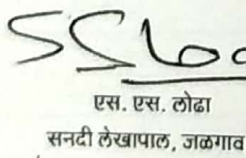 एस. एस. लोढा
सनदी लेखापाल, जळगाव